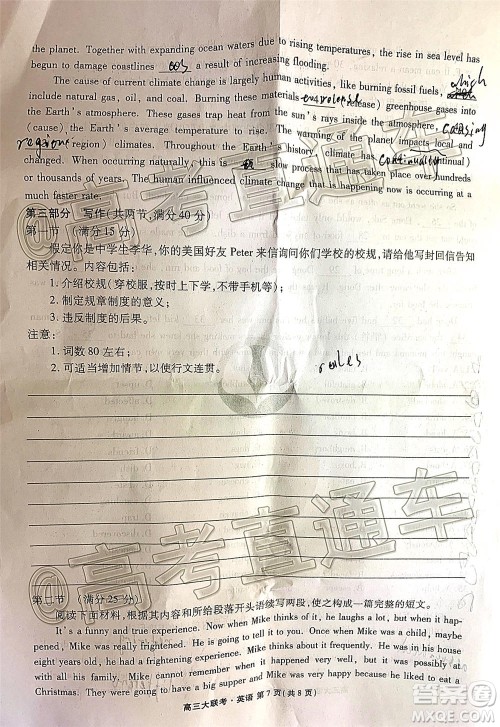 the planet. Together with expanding ocean waters due to rising temperatures, the rise in sea level has
begun to damage coastlines as a result of increasing flooding.
The cause of current climate change is largely human activities, like burning fossil fuels, which
include natural gas, oil, and coal. Burning these materials (release) greenhouse gases into
the Earth's atmosphere. These gases trap heat from the sun's rays inside the atmosphere, causing
(cause), the Earth's average temperature to rise. The warming of the planet impacts local and
regions (region) climates. Throughout the Earth's history, climate has (continual)
changed. When occurring naturally, this is a slow process that has taken place over hundreds
or thousands of years. The human influenced climate change that is happening now is occurring at a
much faster rate.
第三部分 写作(共两节,满分 40 分)
第一节 (满分 15 分)
假定你是中学生李华,你的美国好友 Peter 来信询问你们学校的校规,请给他写封回信告知
相关情况。内容包括:
1. 介绍校规(穿校服,按时上下学,不带手机等);
2. 制定规章制度的意义;
3. 违反制度的后果。
注意:
1. 词数 80 左右;
2. 可适当增加情节,以使行文连贯。
rules
第二节 (满分 25 分)
阅读下面材料,根据其内容和所给段落开头语续写两段,使之构成一篇完整的短文。
It's a funny and true experience. Now when Mike thinks of it, he laughs a lot, but when it hap-
pened, he had a frightening experience. Mike was really little. He is going to tell you about what
Mike and his brother saw. It all started on Christmas Eve. Mike was very excited about
Christmas. They were going to have a big and special dinner. Mike's brother and he were
高三大联考·英语 第 7 页(共 8 页)
@高考直通车
@高考直通车
答案圈
MXQE.COM